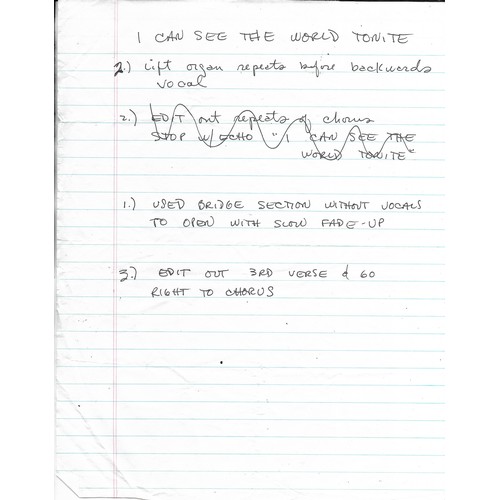 I CAN SEE THE WORLD TONITE
2.) Lift organ repeats before backwards
vocal
2.) EDIT out repeats of chorus
STOP w/ ECHO "I CAN SEE THE
WORLD TONITE"
1.) USED BRIDGE SECTION WITHOUT VOCALS
TO OPEN WITH SLOW FADE-UP
3.) EDIT OUT 3RD VERSE & GO
RIGHT TO CHORUS